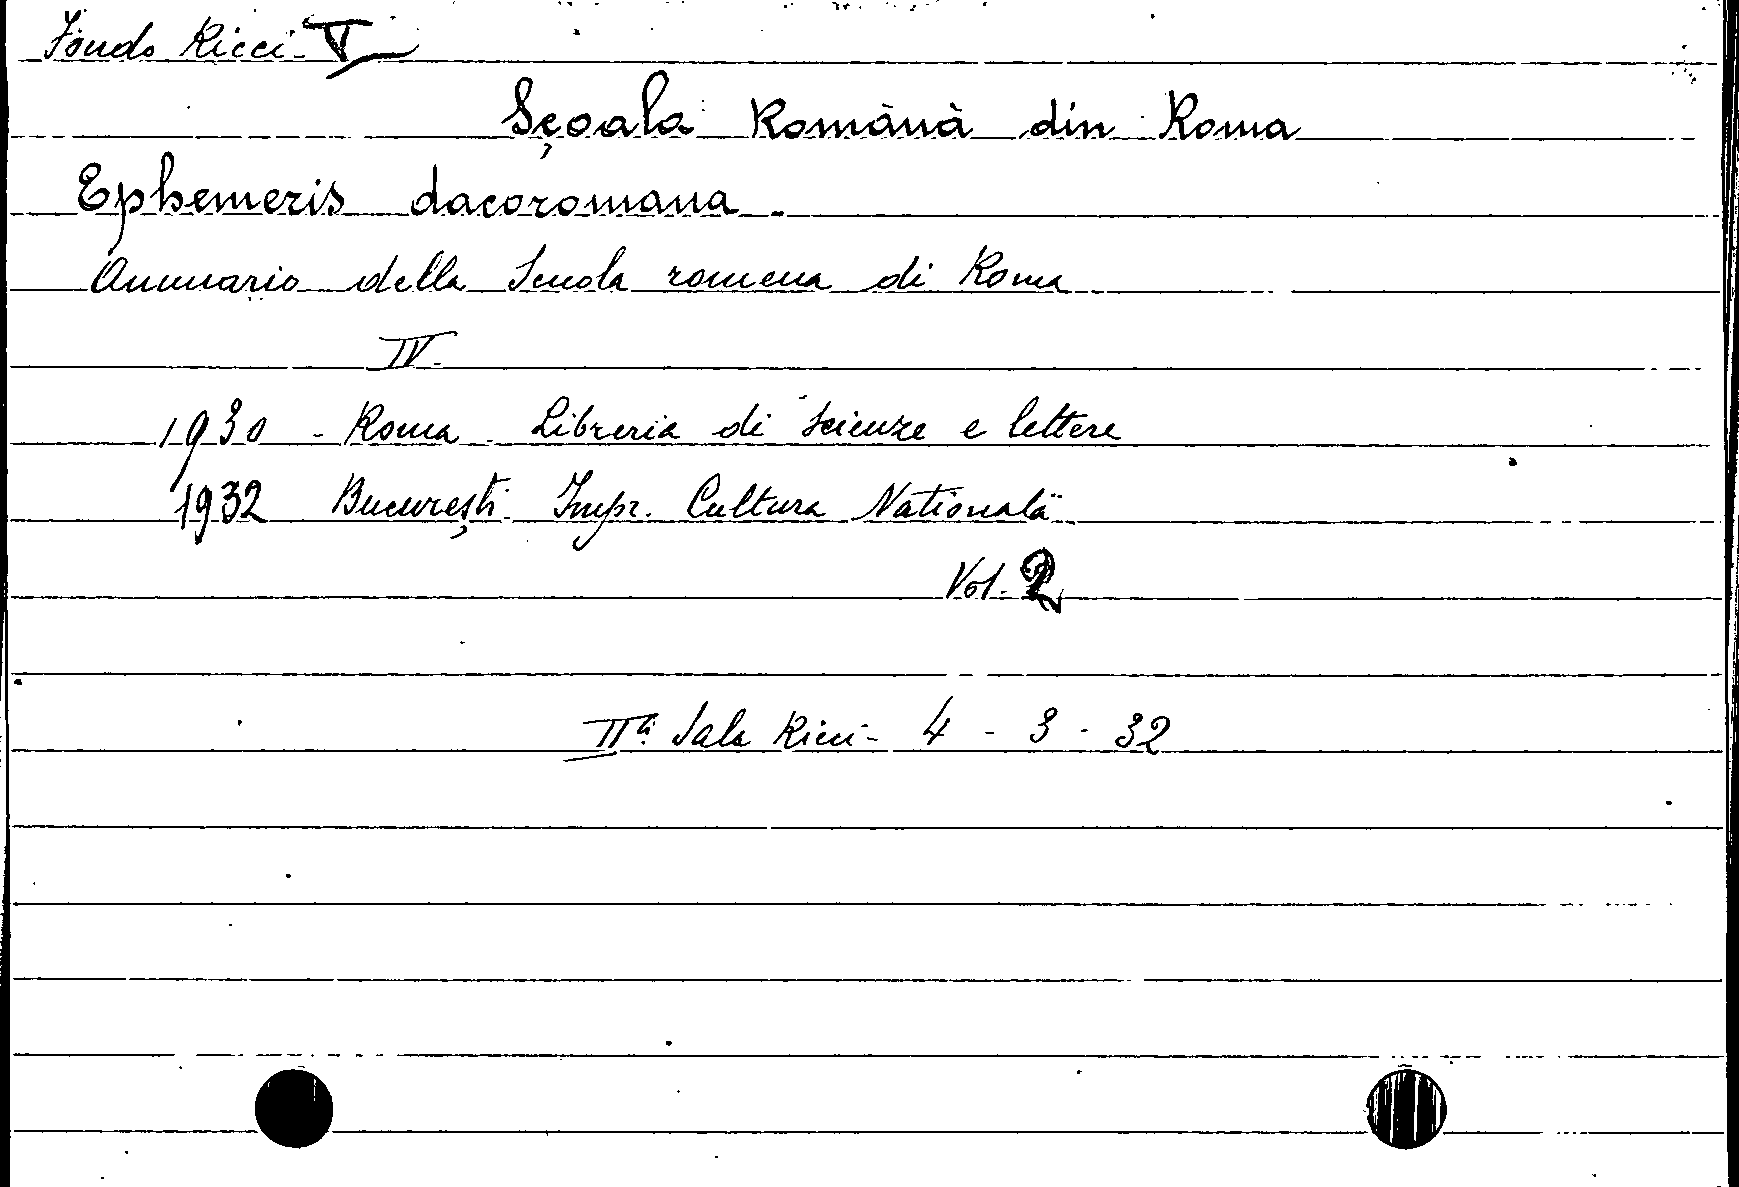 Fondo Ricci V
Sçoala Română din Roma
Ephemeris dacoromana.
Annuario della Scuola romena di Roma
IV.
1930 - Roma. Libreria di Scienze e lettere
1932 București. Impr. Cultura Natională
Vol. 2
IIa Sala Ricci - 4 - 3 - 32